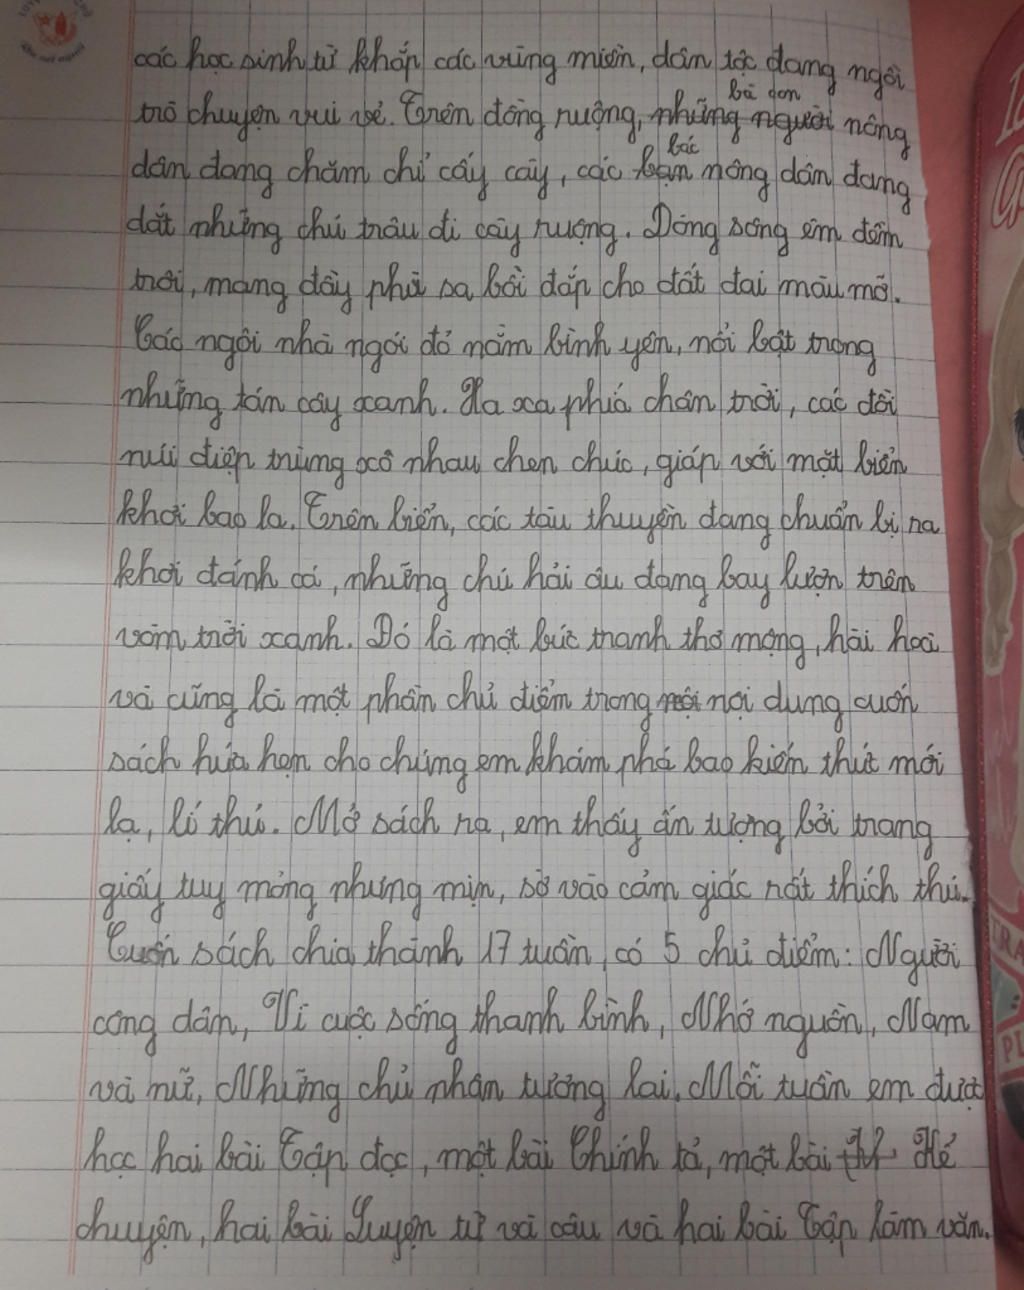 các học sinh từ khắp các vùng miền, dân tộc đang ngồi
trò chuyện vui vẻ. Trên đồng ruộng, những người nông
bà con
dân đang chăm chỉ cấy cày, các bạn nông dân đang
bác
dắt những chú trâu đi cày ruộng. Dòng sông êm đềm
trôi, mang đầy phù sa bồi đắp cho đất đai màu mỡ.
Các ngôi nhà ngói đỏ nằm bình yên, nổi bật trong
những tán cây xanh. Xa xa phía chân trời, các đồi
núi điệp trùng xô nhau chen chúc, giáp với mặt biển
khơi bao la. Trên biển, các tàu thuyền đang chuẩn bị ra
khơi đánh cá, những chú hải âu đang bay lượn trên
vòm trời xanh. Đó là một bức tranh thơ mộng, hài hoà
và cũng là một phần chủ điểm trong nội dung cuốn
sách hứa hẹn cho chúng em khám phá bao kiến thức mới
lạ, lí thú. Mở sách ra, em thấy ấn tượng bởi trang
giấy tuy mỏng nhưng mịn, sờ vào cảm giác rất thích thú.
Cuốn sách chia thành 17 tuần, có 5 chủ điểm: Người
công dân, Vì cuộc sống thanh bình, Nhớ nguồn, Nam
và nữ, Những chủ nhân tương lai. Mỗi tuần em được
học hai bài Tập đọc, một bài Chính tả, một bài Kể
chuyện, hai bài Luyện từ và câu và hai bài Tập làm văn.